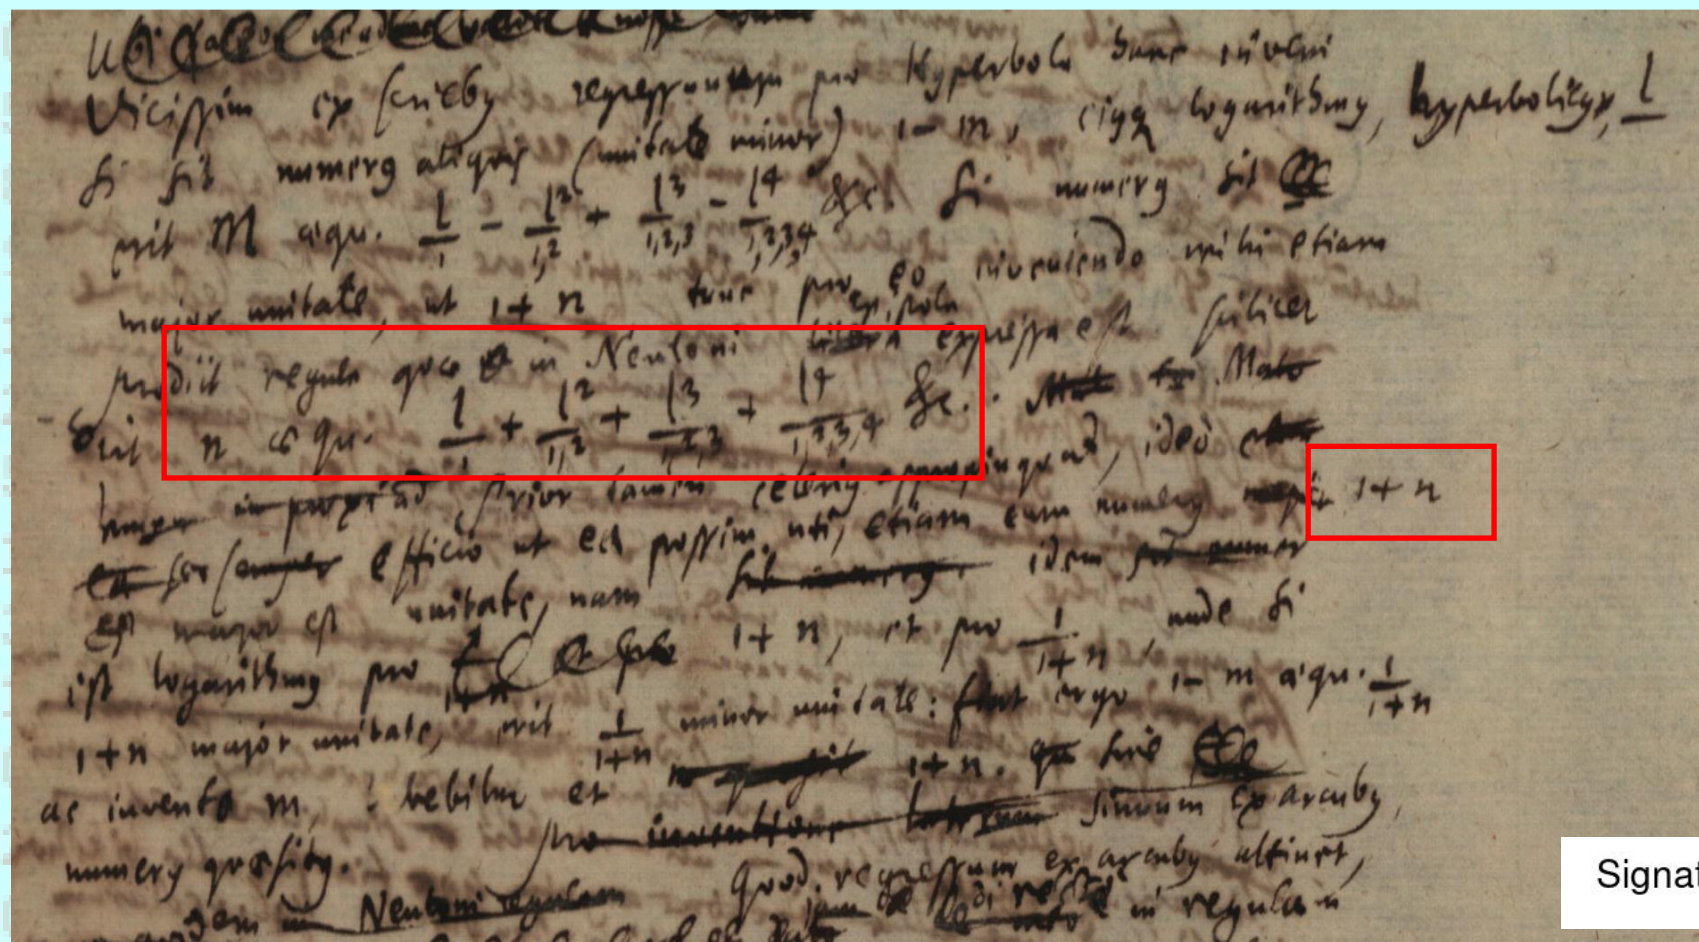 Vicissim ex seriebus regressuum pro Hyperbola hanc inveni
si sit numerus aliquis (unitate minor) 1 - m, eiusque logarithmus hyperbolicus, l
erit m aequ. l/1 - l²/1,2 + l³/1,2,3 - l⁴/1,2,3,4 &c. Si numerus sit
major unitate, ut 1 + n tunc pro eo inveniendo mihi etiam
prodiit regula quae in Neutoni epistola expressa est scilicet
erit n aequ. l/1 + l²/1,2 + l³/1,2,3 + l⁴/1,2,3,4 &c.
prior tamen celerius appropinquat, ideo
efficio ut ea possim uti, etiam cum numerus 1 + n
major est unitate, nam idem
est logarithmus pro 1 + n, et pro 1/1+n, unde si
1 + n major unitate, erit 1/1+n minor unitate: fiat ergo 1 - m aequ. 1/1+n
ac invento m, habebitur et 1 + n.
numerus quaesitus.
pro inventione sinuum ex arcubus
Quod regressum ex arcubus attinet,
Neutoni regulam in regulam
Signat